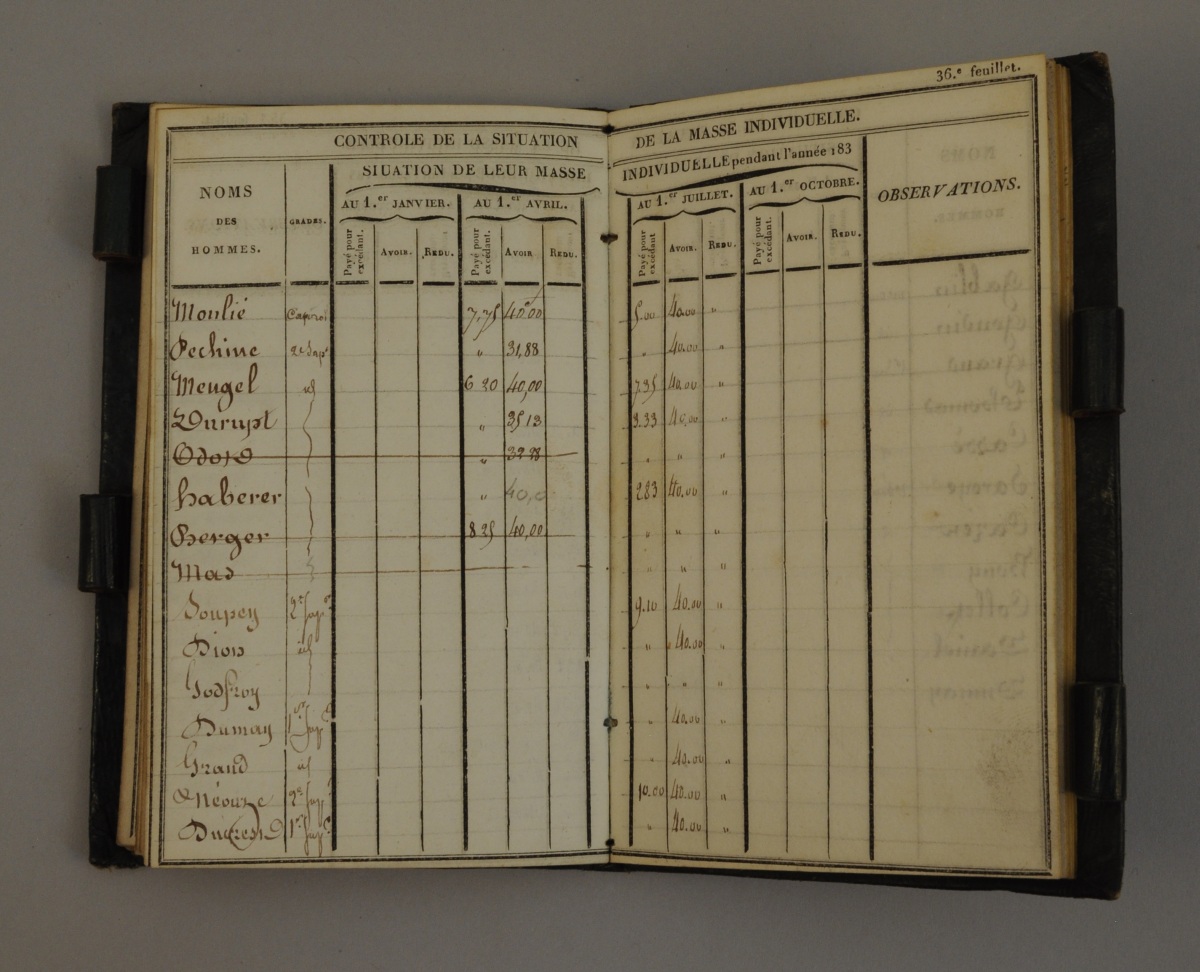 36.e feuillet.
CONTROLE DE LA SITUATION DE LA MASSE INDIVIDUELLE.
NOMS DES HOMMES.
GRADES.
SIUATION DE LEUR MASSE INDIVIDUELLE pendant l'année 183
AU 1.er JANVIER. AU 1.er AVRIL. AU 1.er JUILLET. AU 1.er OCTOBRE.
OBSERVATIONS.
Payé pour excédant. AVOIR. REDU. Payé pour excédant. AVOIR REDU. Payé pour excédant AVOIR. REDU. Payé pour excédant. AVOIR. REDU.
Moulié 7,75 40,00 5.00 40.00 "
Pechine " 31,88 " 40.00 "
Mengel id 6 20 40,00 7.35 40.00 "
Durupt " 35 13 3.33 40.00 "
" " " "
haberer " 40,0 2.83 40.00 "
Berger 8 25 40,00 " " "
Mas " " "
Soupey 9.10 40.00 "
Dion id " 40.00 "
Godfroy " " "
Dumay " 40.00 "
Grand id " 40.00 "
10.00 40.00 "
" 40.00 "